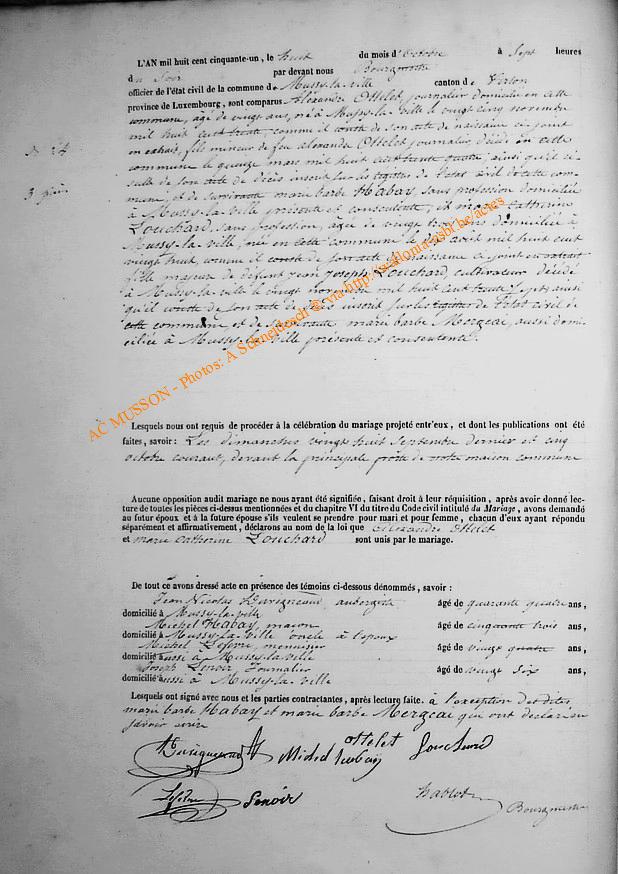 L'AN mil huit cent cinquante-un, le huit du mois d'Octobre à Sept heures
du Soir par devant nous Bourgmestre
officier de l'état civil de la commune de Mussy-la-ville canton de Virton
province de Luxembourg, sont comparus Alexandre Ottelet, journalier domicilié en cette
commune, âgé de vingt ans, né à Mussy-la-ville le vingt cinq novembre
mil huit cent trente, comme il conste de son acte de naissance ci joint
en extrait, fils mineur de feu alexandre Ottelet journalier, décédé en cette
N° 24
commune le quinze mars mil huit cent trente quatre, ainsi qu'il ré-
sulte de son acte de décès inscrit sur les registres de l'état civil de cette com-
3
mune, et de survivante marie barbe Habay, sans profession domiciliée
à Mussy-la-ville présente et consentente, et marie Catherine
Louchard, sans profession, âgée de vingt trois ans domiciliée à
Mussy-la-ville, née en cette commune le avril mil huit cent
vingt huit, comme il conste de son acte de naissance ci joint en extrait
fille majeure de défunt jean joseph Louchard, cultivateur décédé
à Mussy-la-ville le vingt novembre mil huit cent trente ainsi
qu'il conste de son acte de décès inscrit sur les registres de l'état civil de
cette commune et de survivante marie barbe Mergeai, aussi domi-
ciliée à Mussy-la-ville présente et consentente.
AC MUSSON - Photos: A Schneidesch © via http://wallonia-asbl.be/actes
Lesquels nous ont requis de procéder à la célébration du mariage projeté entr'eux, et dont les publications ont été
faites, savoir : Les dimanches vingt huit Septembre dernier et cinq
octobre courant, devant la principale porte de notre maison commune
Aucune opposition audit mariage ne nous ayant été signifiée, faisant droit à leur réquisition, après avoir donné lec-
ture de toutes les pièces ci-dessus mentionnées et du chapitre VI du titre du Code civil intitulé du Mariage, avons demandé
au futur époux et à la future épouse s'ils veulent se prendre pour mari et pour femme, chacun d'eux ayant répondu
séparément et affirmativement, déclarons au nom de la loi que Alexandre Ottelet
et marie catherine Louchard sont unis par le mariage.
De tout ce avons dressé acte en présence des témoins ci-dessous dénommés, savoir :
Jean Nicolas aubergiste âgé de quarante quatre ans,
domicilié à Mussy-la-ville
Michel Habay, maçon âgé de cinquante trois ans,
domicilié à Mussy-la-ville oncle à l'époux
Michel Lefèvre, menuisier âgé de vingt quatre ans,
domicilié aussi à Mussy-la-ville
Joseph Lenoir Journalier âgé de vingt Six ans,
domicilié aussi à Mussy-la-ville
Lesquels ont signé avec nous et les parties contractantes, après lecture faite. à l'exception desdites
marie barbe Habay et marie barbe Mergeai qui ont déclaré ne
savoir écrire
Ottelet Louchard
Michel habay
Lefèvre Lenoir hablot
Bourgmestre